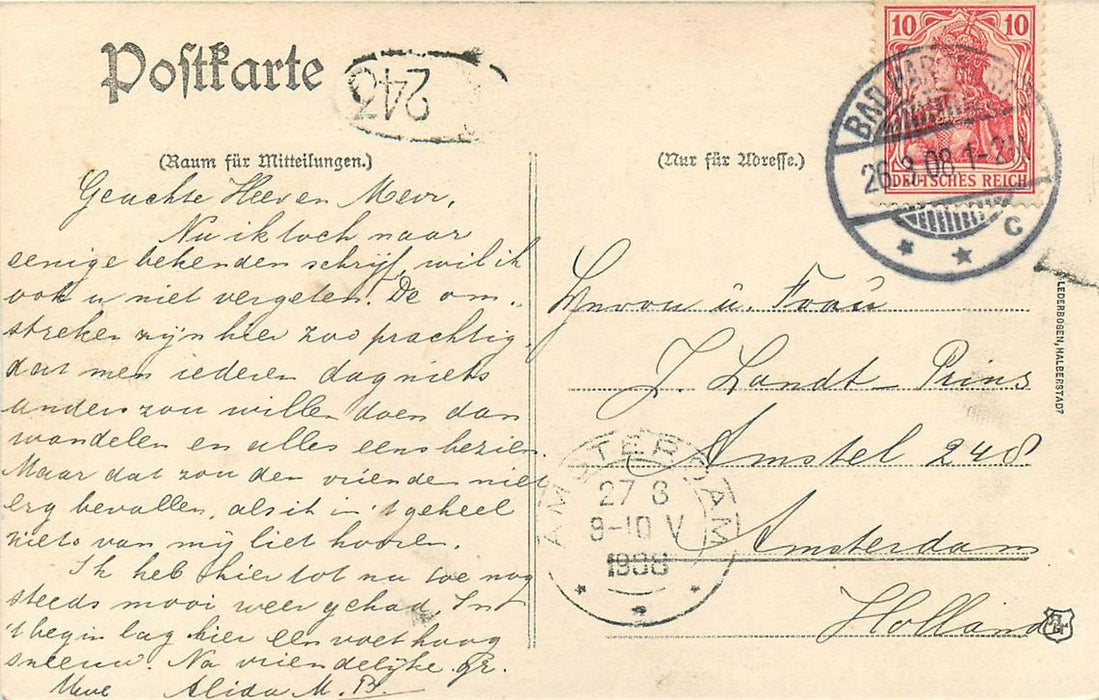 Postkarte
243
(Raum für Mitteilungen.)
Geachte Heer en Mevr,
Nu ik toch naar
eenige bekenden schrijf, wil ik
ook u niet vergeten. De om-
streken zijn hier zoo prachtig,
dat men iederen dag niets
anders zou willen doen dan
wandelen en alles eens bezien.
Maar dat zou den vrienden niet
erg bevallen, als it in 't geheel
niets van mij liet hooren.
Ik heb hier tot nu toe nog
steeds mooi weer gehad, In
't begin lag hier een voet hoog
sneeuw. Na vriendelijke gr.
Uwe Alida M. B.
10 10
DEUTSCHES REICH
BAD HARZBURG
26.3.08.1-2N
C
(Nur für Adresse.)
Herrn u. Frau
J. Landt Prins
Amstel 248
Amsterdam
Holland
AMSTERDAM
27 3
9-10 V
1908
LEDERBOGEN, HALBERSTADT